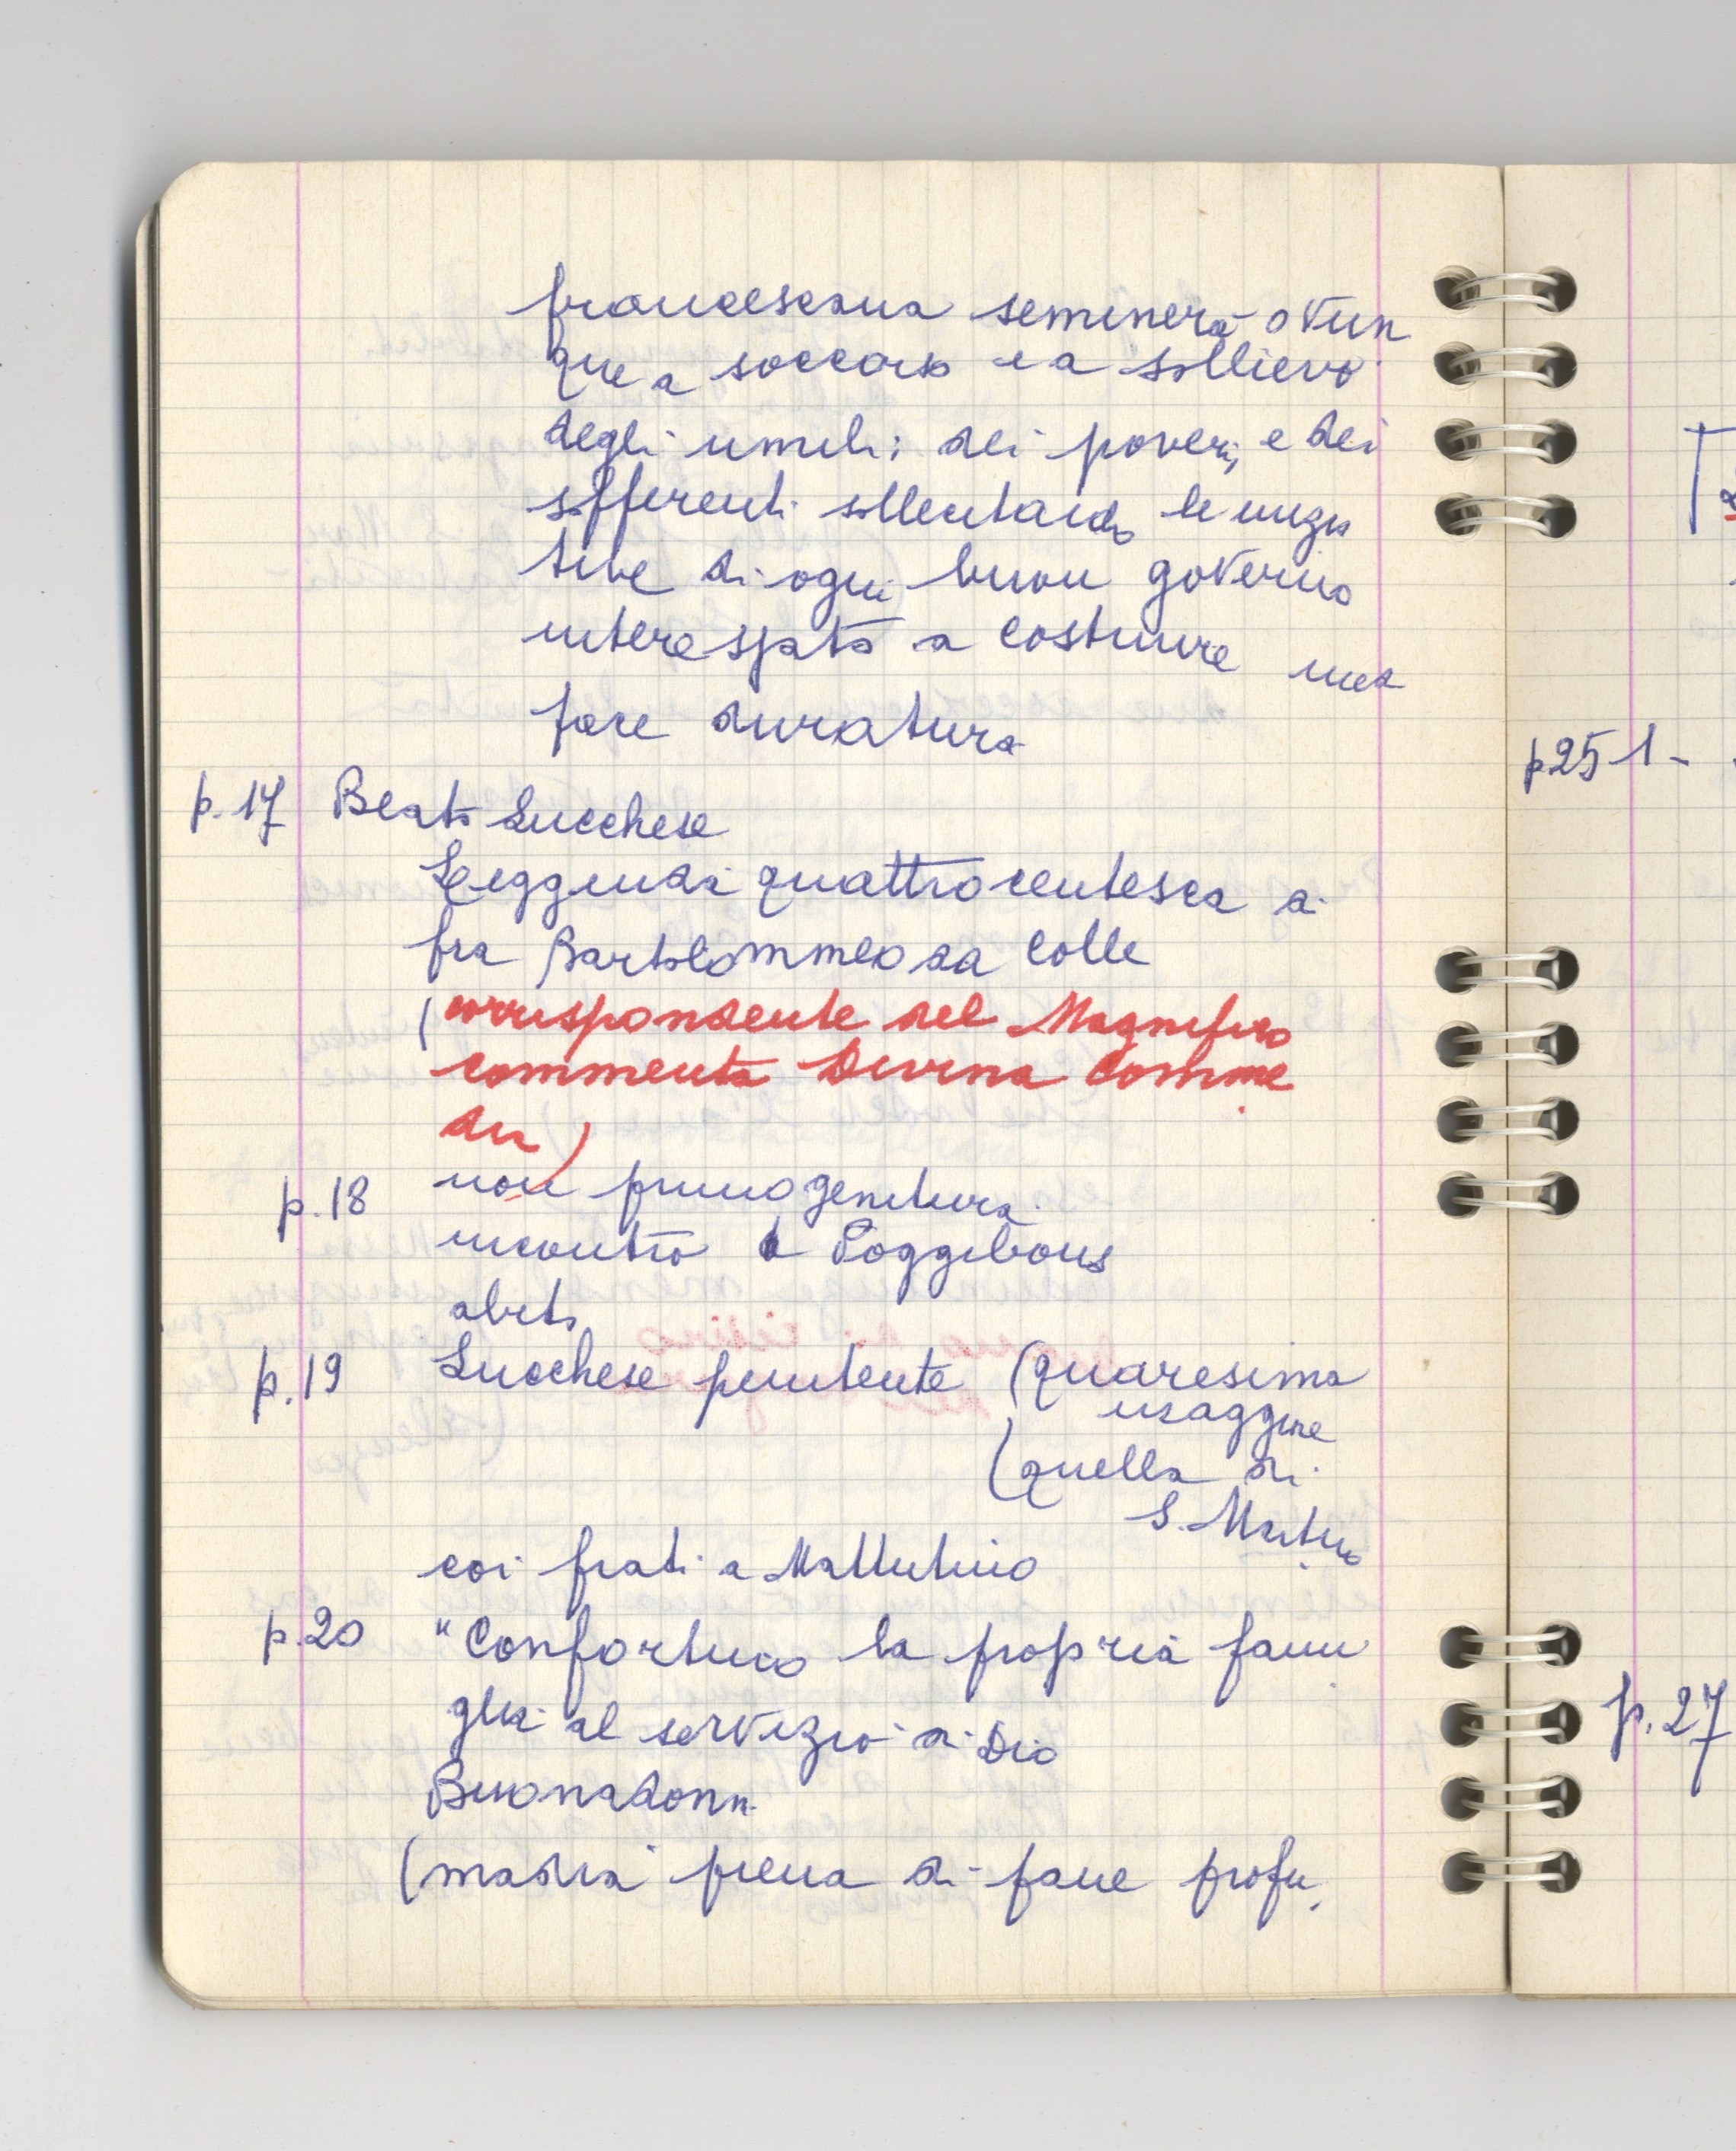 francescana seminerà ovun
que a soccorso e a sollievo
degli umili; dei poveri, e dei
sofferenti sollecitando le inizia
tive di ogni buon governo
interessato a costruire una
pace duratura
p. 17 Beato Lucchese
Leggenda quattrocentesca di
fra Bartolommeo da Colle
(corrispondente del Magnifico
commenta Divina Comme
dia)
p. 18 non primogenitura
incontro a Poggibonsi
abito
p. 19 Lucchese penitente (quaresima
(quella di
S. Martino
coi frati a Mattutino
p. 20 "Confortino la propria fami
glia al servizio di Dio
Buonadonna
(madia piena di pane profu
p 25 1 -
p. 27